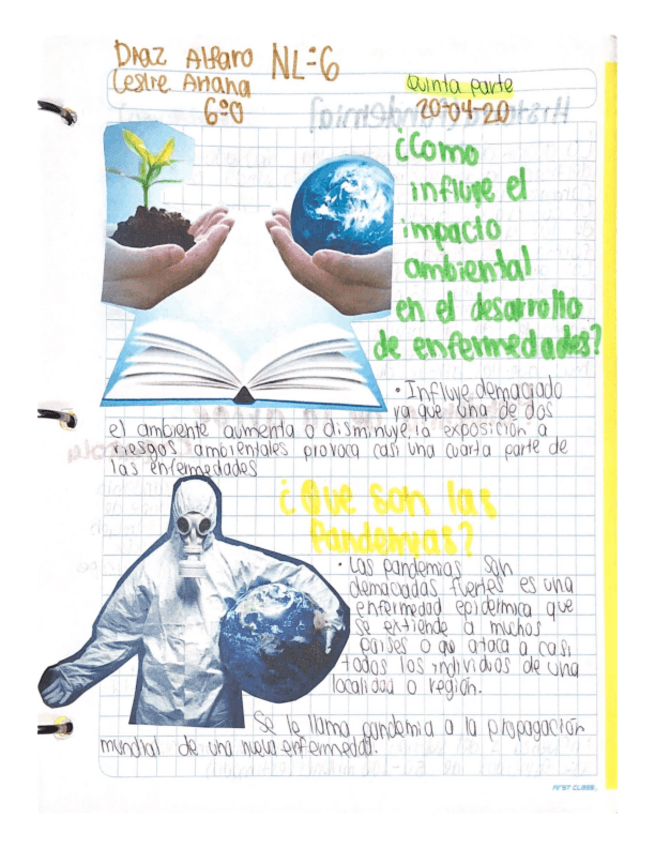 Diaz Alfaro NL=6
Leslie Ariana
6=0
Quinta parte
20-04-20
¿Como
influye el
impacto
ambiental
en el desarrollo
de enfermedades?
• Influye demaciado
ya que una de dos
el ambiente aumenta o disminuye, la exposición a
riesgos ambientales provoca casi una cuarta parte de
las enfermedades
¿Que son las
Pandemyas?
• Las pandemias son
demaciadas fuertes es una
enfermedad epidermica que
se extiende a muchos
paises o que ataca a casi
todos los individios de una
localidad o región.
Se le llama pandemia a la propagación
mundial de una nueva enfermedad.
FIRST CLASS.